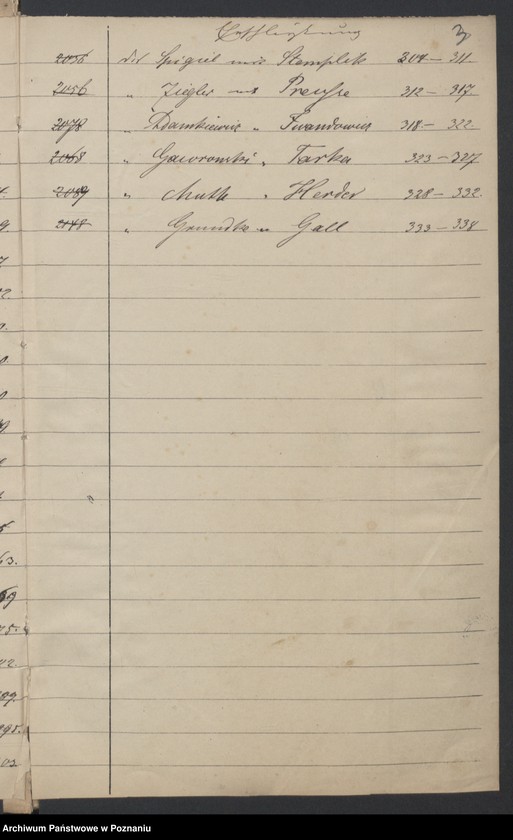 Eheschließung 3
2036 der Spigiel mit Stemplik 304 — 311
2056 " Ziegler mit Preusse 312 — 317
2078 " Adamkiewicz " Iwandowicz 318 — 322
2068 " Gaworonski " Tarka 323 — 327
2089 " Muth " Herder 328 — 332.
" Grundke " Gall 333 — 338
Archiwum Państwowe w Poznaniu